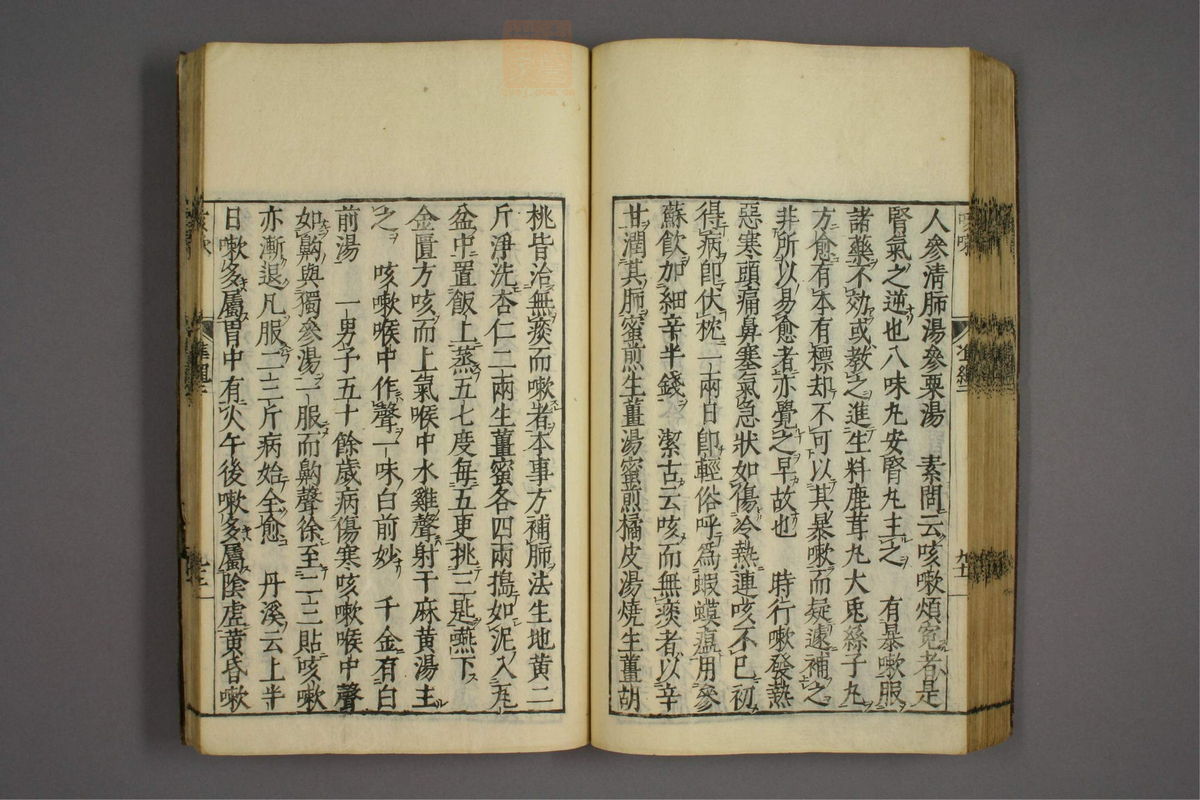 人參清肺湯參粟湯　素問云咳嗽煩寃者是
腎氣之逆也八味丸安腎丸主之　有暴嗽服
諸藥不効或教之進生料鹿茸丸大兎絲子丸
方愈有本有標却不可以其暴嗽而疑遽補之
非所以易愈者亦覺之早故也　時行嗽發熱
惡寒頭痛鼻塞氣急狀如傷冷熱連咳不已初
得病即伏枕一兩日即輕俗呼爲蝦蟆瘟用參
蘇飲加細辛半錢　潔古云咳而無痰者以辛
甘潤其肺蜜煎生薑湯蜜煎橘皮湯燒生薑胡
桃皆治無痰而嗽者本事方補肺法生地黃二
斤淨洗杏仁二兩生薑蜜各四兩搗如泥入瓦
盆中置飯上蒸五七度每五更挑三匙嚥下
金匱方咳而上氣喉中水雞聲射干麻黃湯主
之　咳嗽喉中作聲一味白前妙　千金有白
前湯　一男子五十餘歲病傷寒咳嗽喉中聲
如齁與獨參湯一服而齁聲徐至二三貼咳嗽
亦漸退凡服二三斤病始全愈　丹溪云上半
日嗽多屬胃中有火午後嗽多屬陰虛黃昏嗽